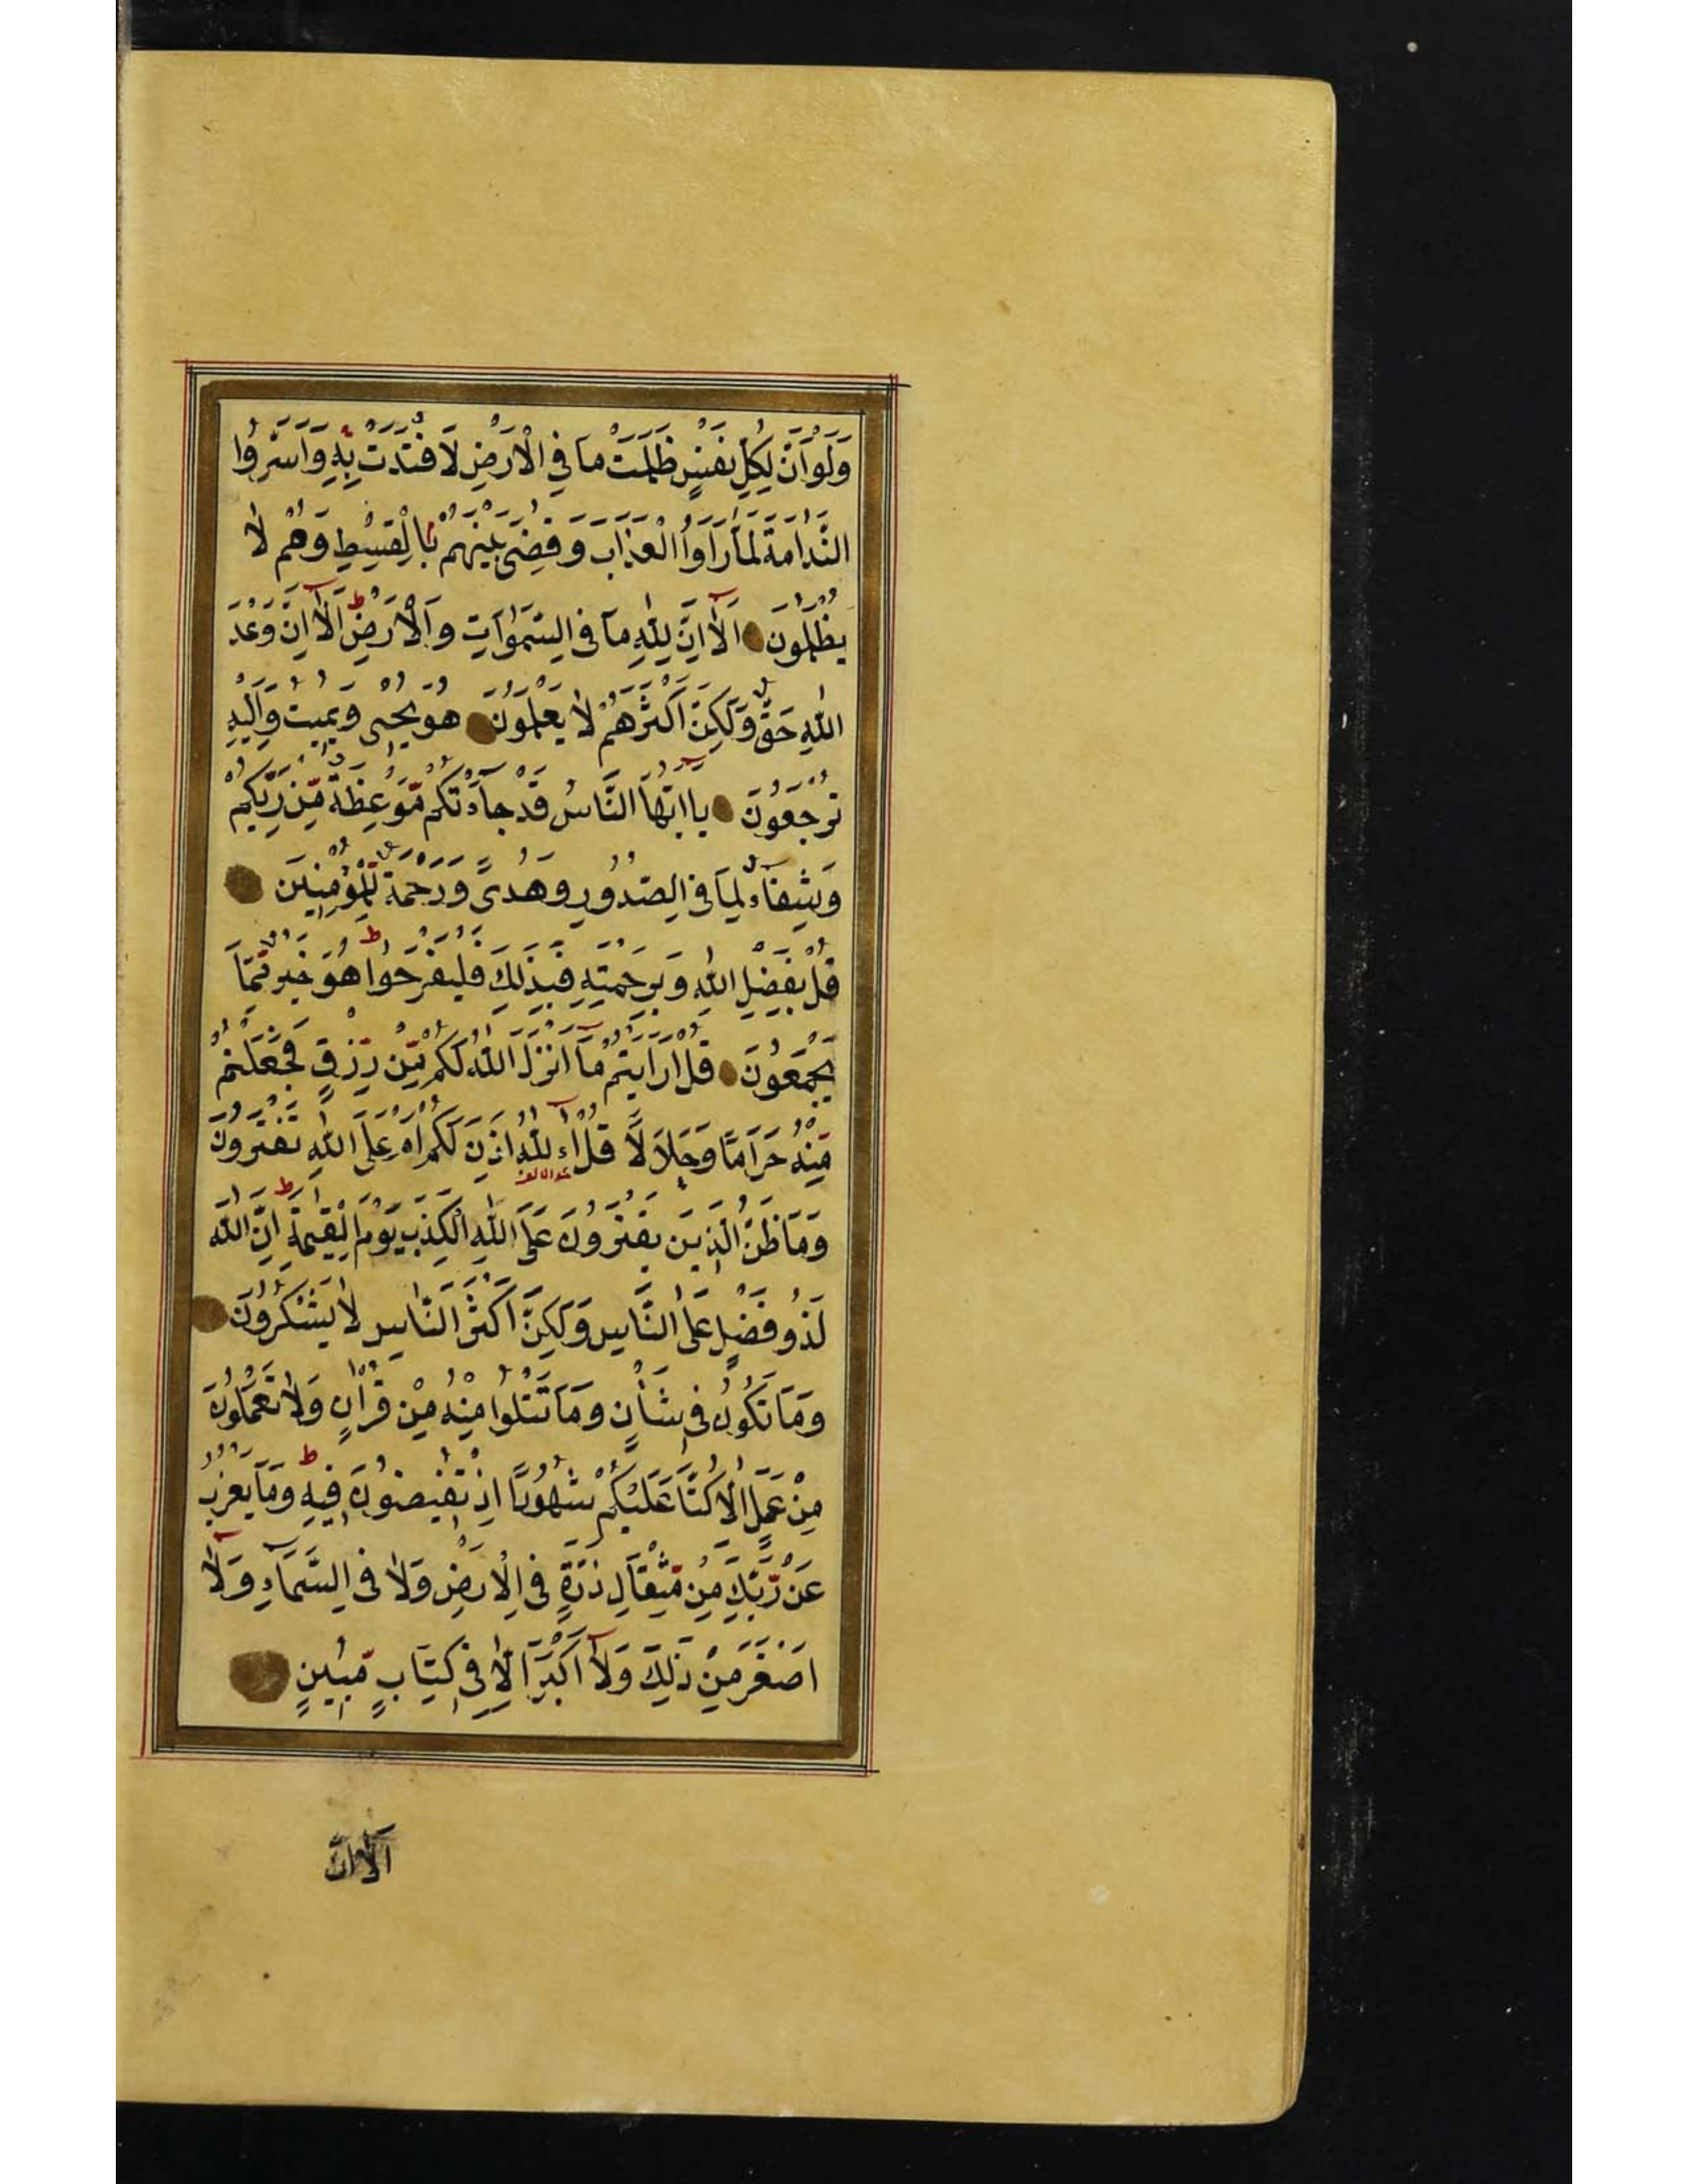 وَلَوْ اَنَّ لِكُلِّ نَفْسٍ ظَلَمَتْ مَا فِي الْاَرْضِ لَافْتَدَتْ بِهٖ وَاَسَرُّوا
النَّدَامَةَ لَمَّا رَاَوُا الْعَذَابَ وَقُضِیَ بَيْنَهُمْ بِالْقِسْطِ وَهُمْ لَا
يُظْلَمُونَ اَلَآ اِنَّ لِلّٰهِ مَا فِی السَّمٰوَاتِ وَالْاَرْضِ ط اَلَآ اِنَّ وَعْدَ
اللّٰهِ حَقٌّ وَلَكِنَّ اَكْثَرَهُمْ لَا يَعْلَمُونَ هُوَ يُحْیٖ وَيُمِيتُ وَاِلَيْهِ
تُرْجَعُونَ يَا اَيُّهَا النَّاسُ قَدْ جَآءَتْكُمْ مَّوْعِظَةٌ مِّنْ رَبِّكُمْ
وَشِفَآءٌ لِمَا فِی الصُّدُورِ وَهُدیً وَرَحْمَةٌ لِّلْمُؤْمِنِينَ
قُلْ بِفَضْلِ اللّٰهِ وَبِرَحْمَتِهٖ فَبِذٰلِكَ فَلْيَفْرَحُوا ط هُوَ خَيْرٌ مِّمَّا
يَجْمَعُونَ قُلْ اَرَاَيْتُمْ مَّآ اَنْزَلَ اللّٰهُ لَكُمْ مِّنْ رِّزْقٍ فَجَعَلْتُمْ
مِّنْهُ حَرَامًا وَحَلَالًا قُلْ آءللّٰهُ اَذِنَ لَكُمْ اَمْ عَلَی اللّٰهِ تَفْتَرُونَ
وَمَا ظَنُّ الَّذِينَ يَفْتَرُونَ عَلَی اللّٰهِ الْكَذِبَ يَوْمَ الْقِيٰمَةِ ط اِنَّ اللّٰهَ
لَذُو فَضْلٍ عَلَی النَّاسِ وَلٰكِنَّ اَكْثَرَ النَّاسِ لَا يَشْكُرُونَ
وَمَا تَكُونُ فِی شَأْنٍ وَمَا تَتْلُوا مِنْهُ مِنْ قُرْاٰنٍ وَلَا تَعْمَلُونَ
مِنْ عَمَلٍ اِلَّا كُنَّا عَلَيْكُمْ شُهُودًا اِذْ تُفِيضُونَ فِيهِ ط وَمَا يَعْزُبُ
عَنْ رَّبِّكَ مِنْ مِّثْقَالِ ذَرَّةٍ فِی الْاَرْضِ وَلَا فِی السَّمَآءِ وَلَآ
اَصْغَرَ مِنْ ذٰلِكَ وَلَآ اَكْبَرَ اِلَّا فِی كِتَابٍ مُّبِينٍ
اَلَآ اِنَّ